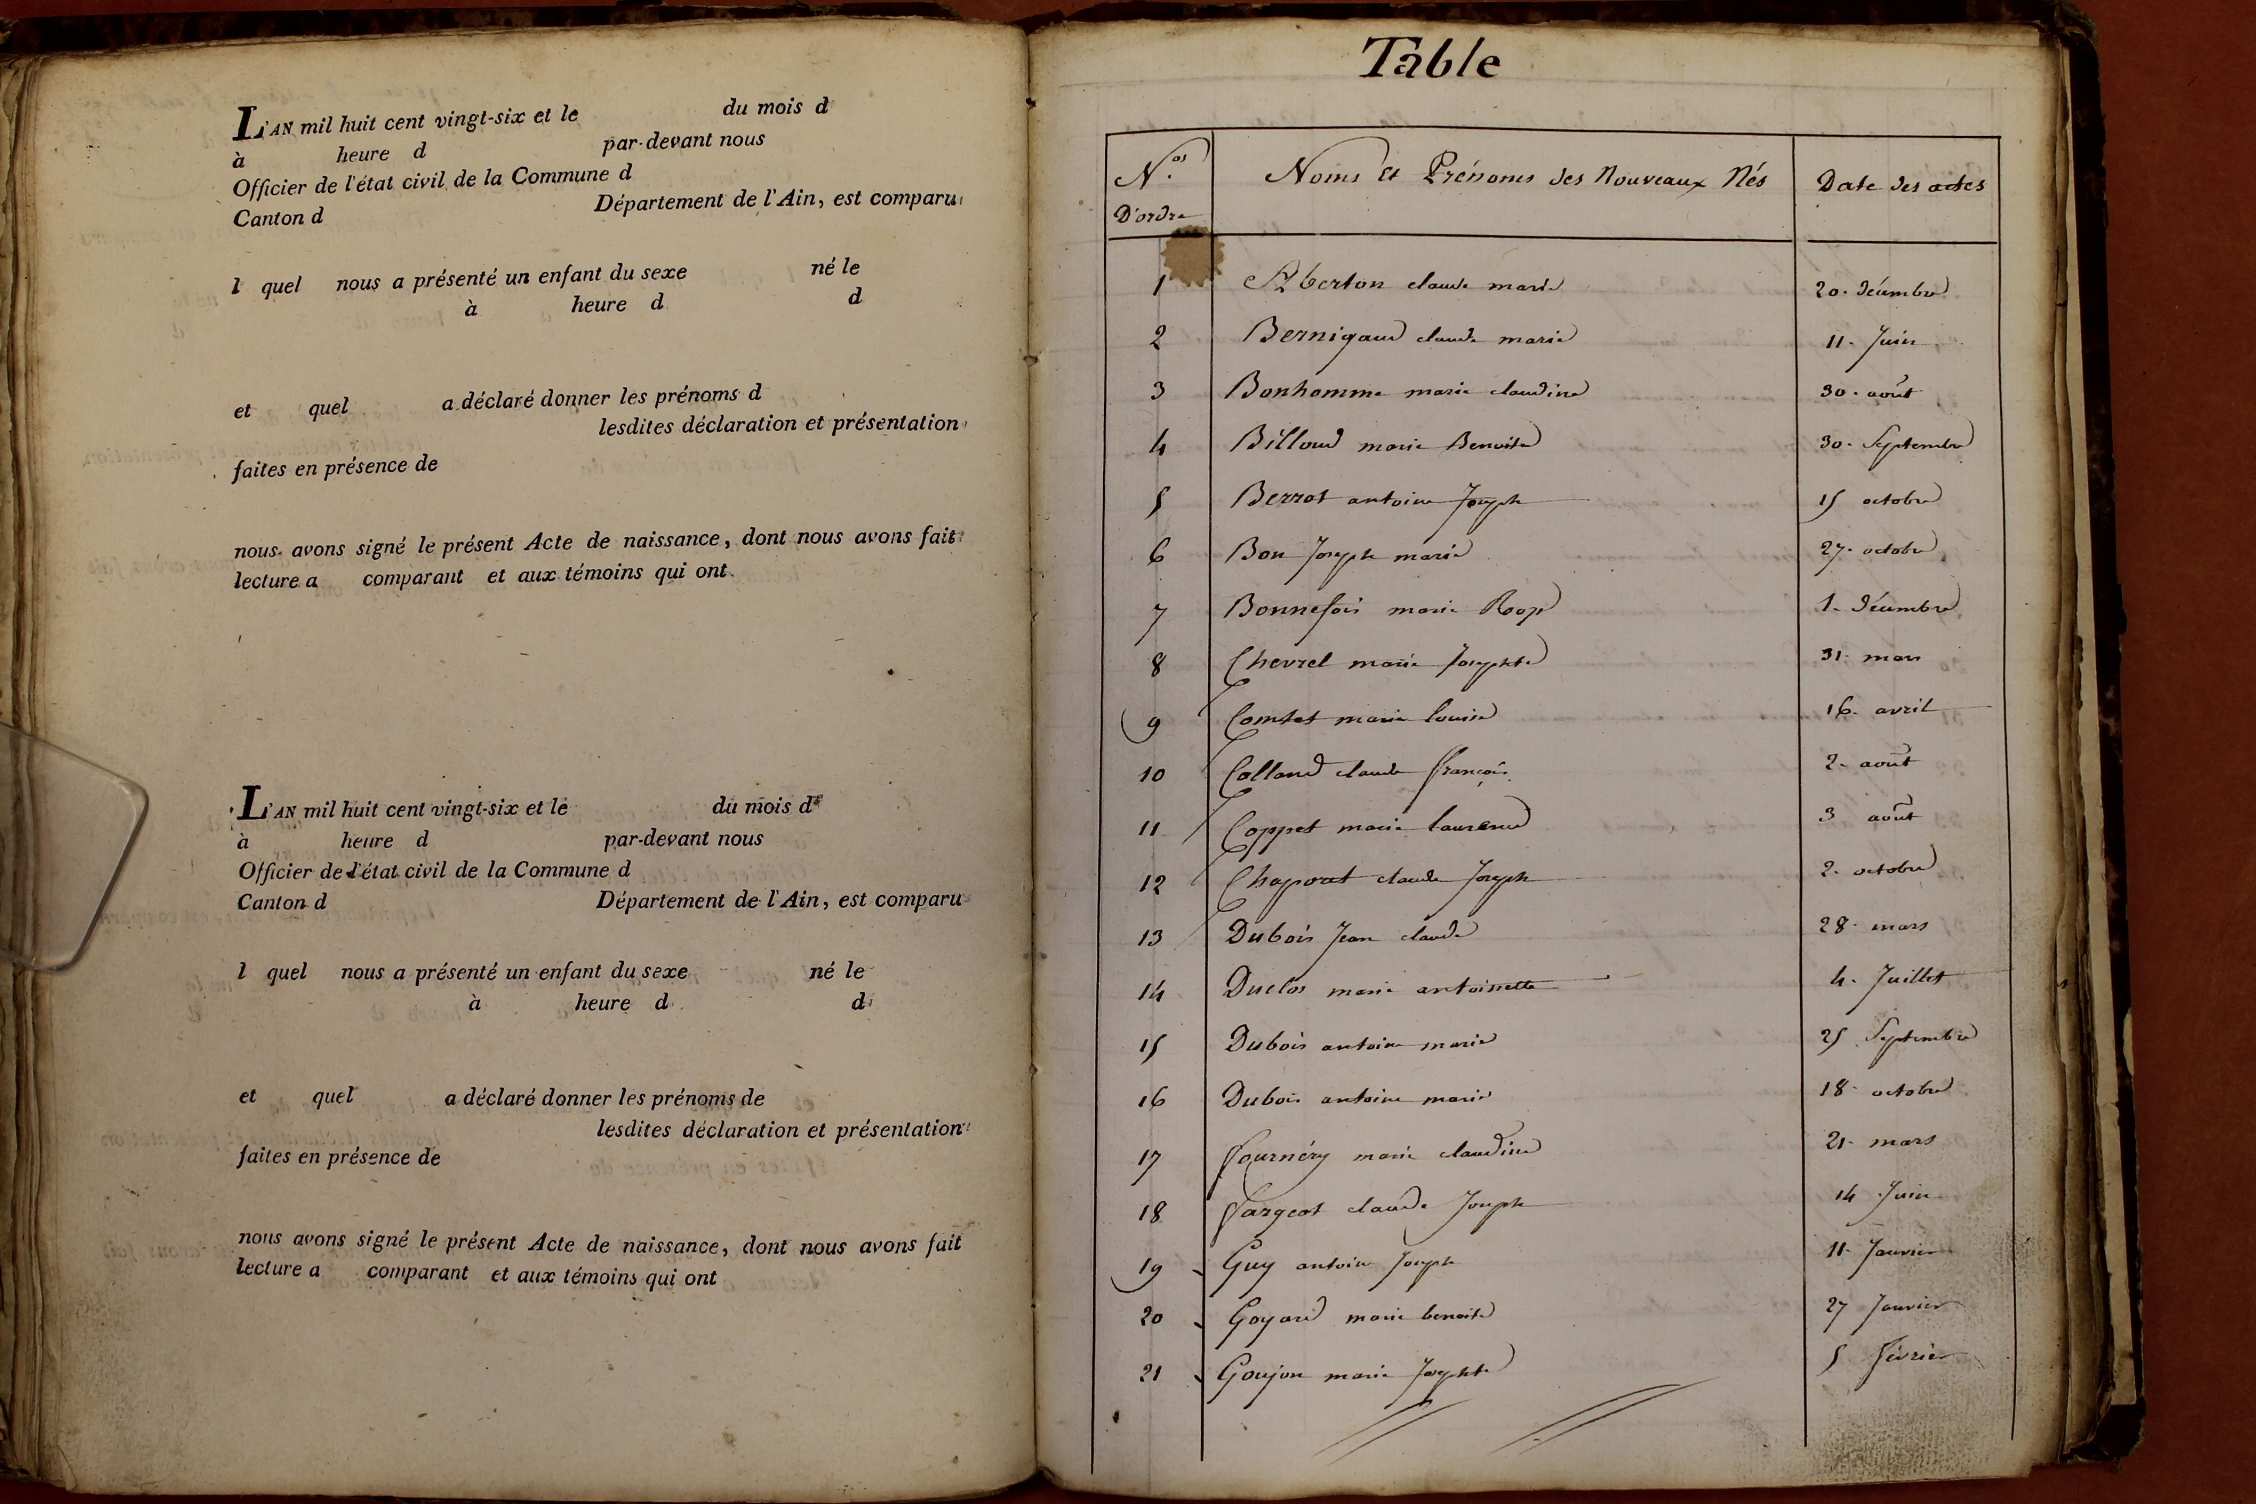 L'AN mil huit cent vingt-six et le du mois d
à heure d par-devant nous
Officier de l'état civil de la Commune d
Canton d Département de l'Ain, est comparu
l quel nous a présenté un enfant du sexe né le
à heure d d
et quel a déclaré donner les prénoms d
lesdites déclaration et présentation
faites en présence de
nous avons signé le présent Acte de naissance, dont nous avons fait
lecture a comparant et aux témoins qui ont
L'AN mil huit cent vingt-six et le du mois d
à heure d par-devant nous
Officier de l'état civil de la Commune d
Canton d Département de l'Ain, est comparu
l quel nous a présenté un enfant du sexe né le
à heure d d
et quel a déclaré donner les prénoms de
lesdites déclaration et présentation
faites en présence de
nous avons signé le présent Acte de naissance, dont nous avons fait
lecture a comparant et aux témoins qui ont
Table
N.os D'ordre Noms et Prénoms des Nouveaux Nés Date des actes
1 Alberton claude marie 20. décembre
2 Bernigaud claude marie 11. Juin
3 Bonhomme marie claudine 30. août
4 Billoud marie Benoite 30. Septembre
5 Berrot antoine Joseph 15 octobre
6 Bon Joseph marie 27. octobre
7 Bonnefois marie Rose 1. décembre
8 Chevrel marie Josephte 31. mars
9 Comtet marie louise 16. avril
10 Colland claude françois 2. août
11 Coppet marie laurence 3 août
12 Chaporat claude Joseph 2. octobre
13 Dubois Jean claude 28. mars
14 Duclos marie antoinette 4. Juillet
15 Dubois antoine marie 25 Septembre
16 Dubois antoine marie 18. octobre
17 fournéry marie claudine 21. mars
18 fargeot claude Joseph 14 Juin
19 Guy antoine Joseph 11. Janvier
20 Goyard marie benoite 27 Janvier
21 Goujon marie Josephte 5 février